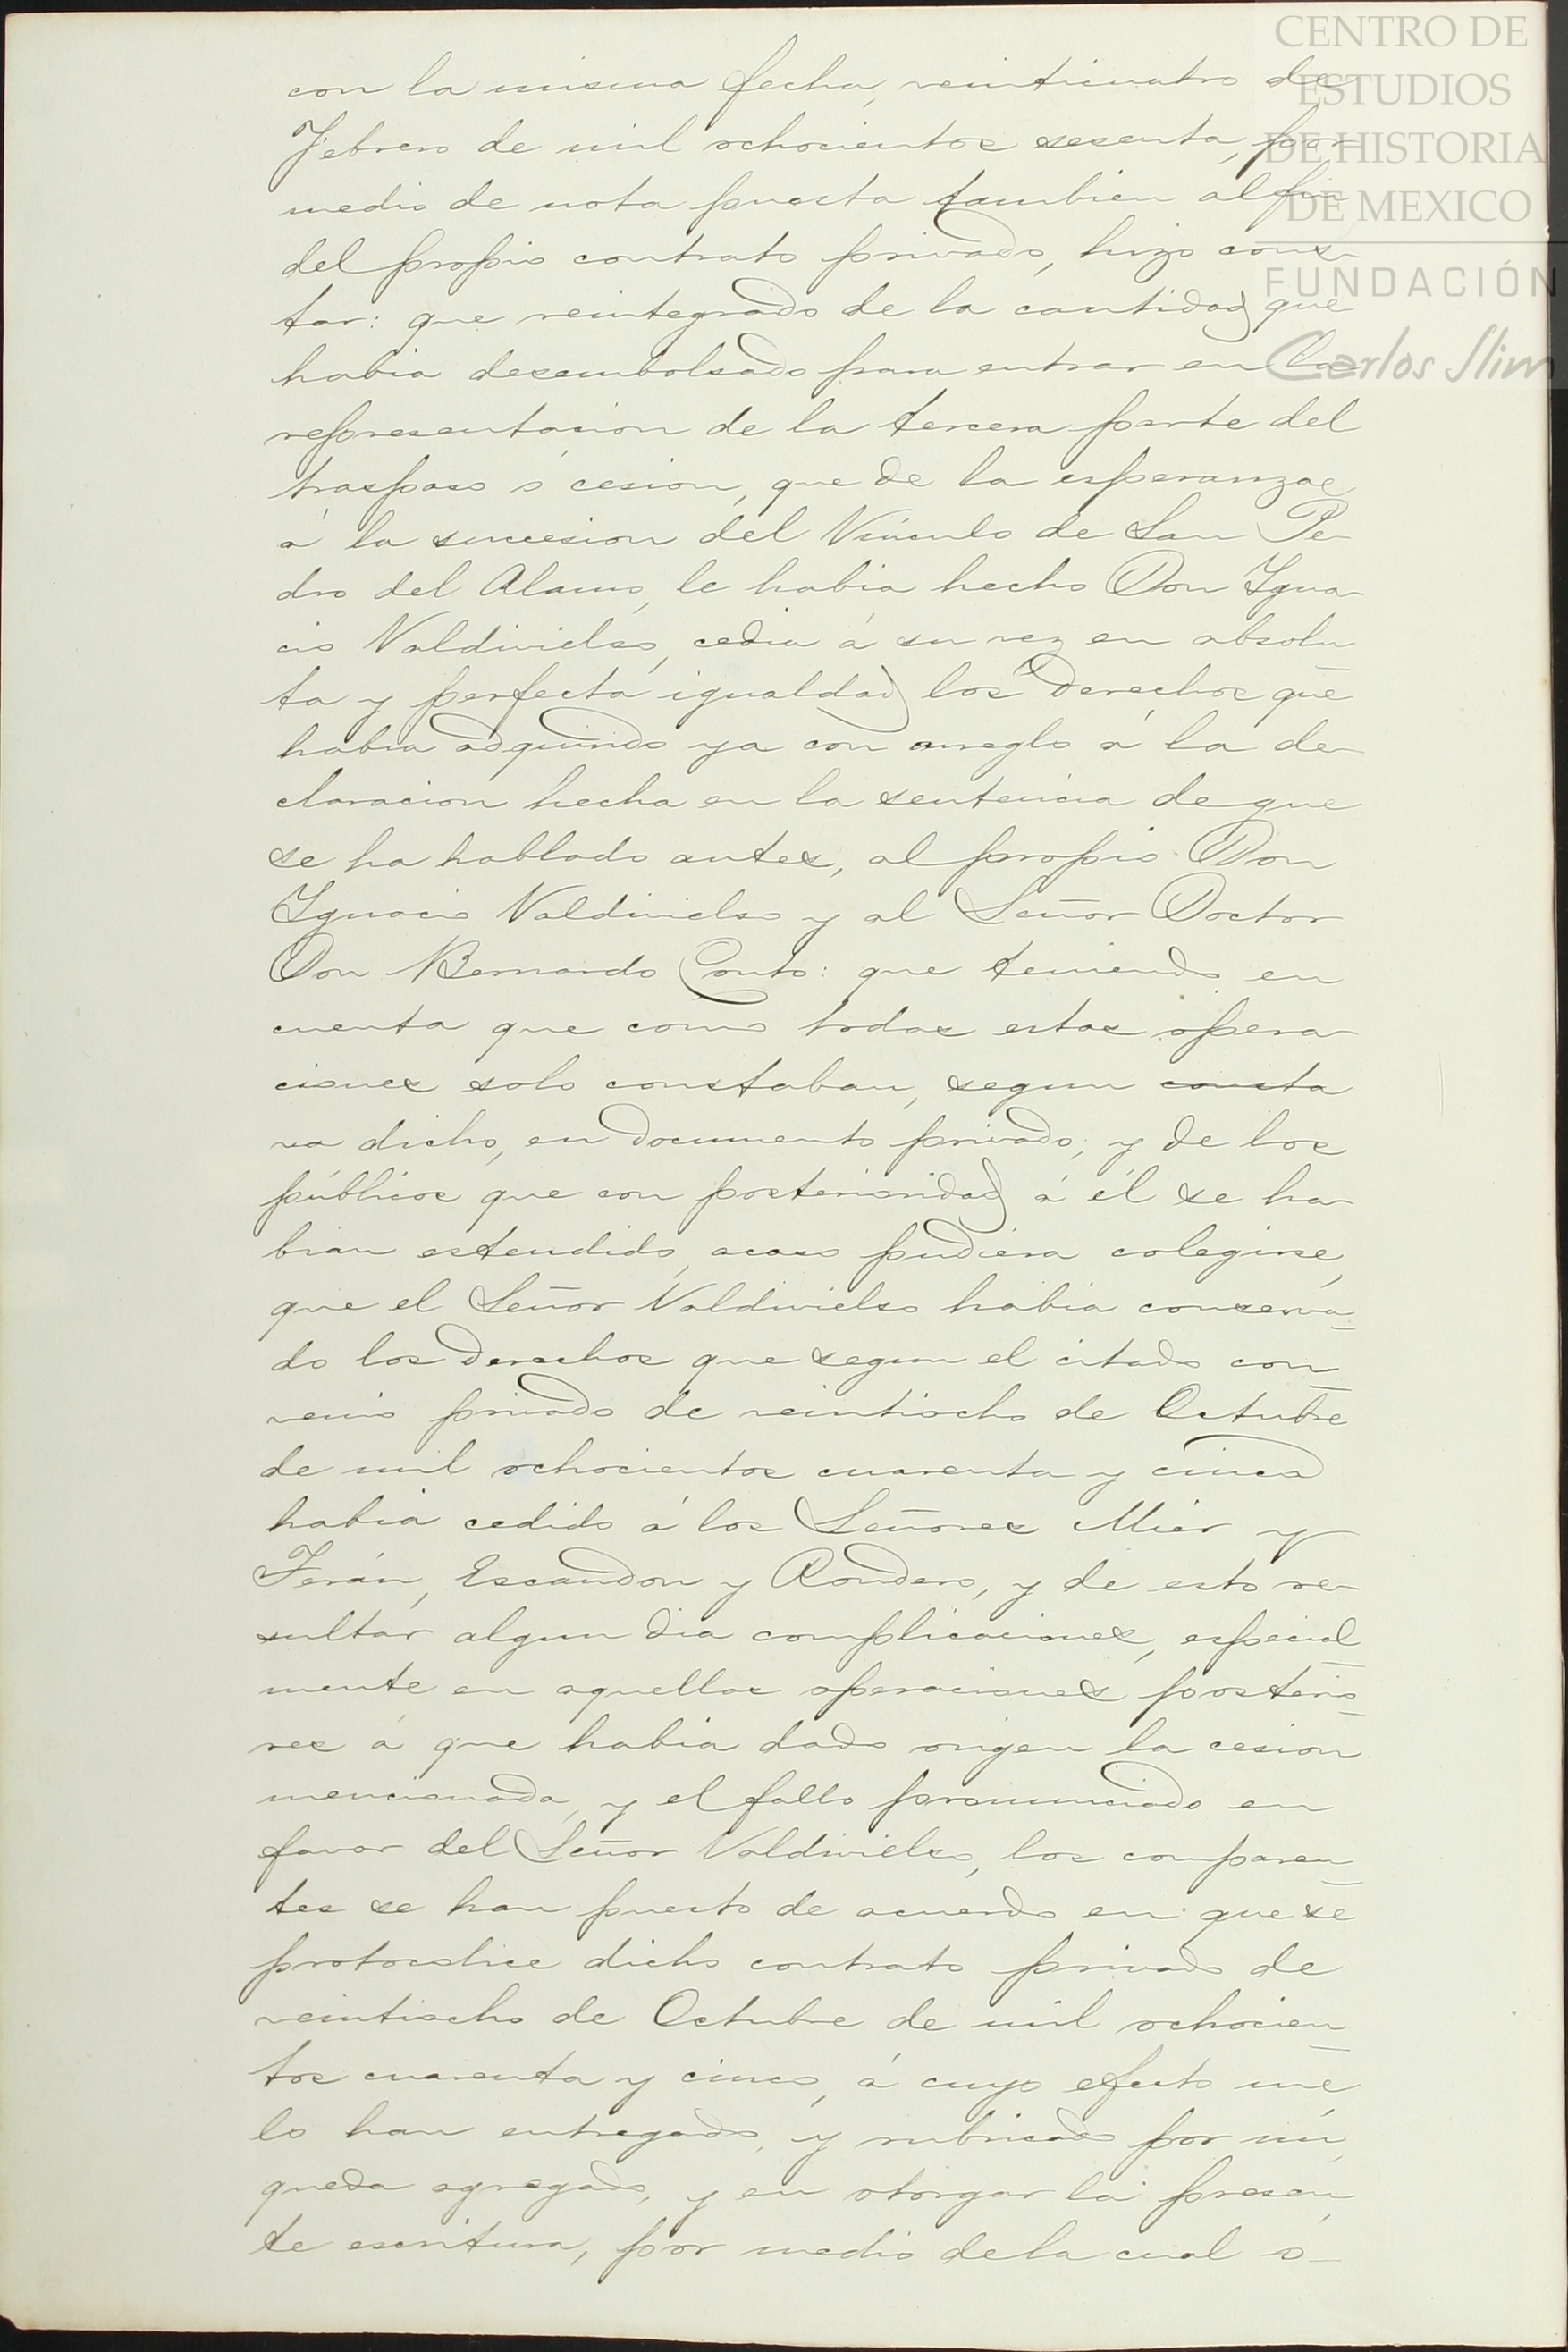 CENTRO DE
ESTUDIOS
DE HISTORIA
DE MEXICO
FUNDACIÓN
Carlos Slim
con la misma fecha, veinticuatro de
Febrero de mil ochocientos sesenta, por
medio de nota puesta tambien al fin
del propio contrato privado, hizo cons-
tar: que reintegrado de la cantidad que
habia desembolsado para entrar en la
representacion de la tercera parte del
traspaso ó cesion, que de la esperanzas
á la succesion del Vínculo de San Pe-
dro del Alamo, le habia hecho Don Igna-
cio Valdivielso, cedia á su vez en absolu
ta y perfecta igualdad los derechos que
habia adquirido ya con arreglo á la de-
claracion hecha en la sentencia de que
se ha hablado antes, al propio Don
Ignacio Valdivielso y al Señor Doctor
Don Bernardo Couto: que teniendo en
cuenta que como todas estas opera-
ciones solo constaban, segun consta
va dicho, en documento privado; y de los
públicos que con posterioridad á él se ha-
bian estendido, acaso pudiera colegirse,
que el Señor Valdivielso habia conserva-
do los derechos que segun el citado con-
venio privado de veintiocho de Octubre
de mil ochocientos cuarenta y cinco
habia cedido á los Señores Mier y
Terán, Escandon y Rondero, y de esto re-
sultar algun dia complicaciones, especial-
mente en aquellas operaciones posterio-
res á que habia dado origen la cesion
mencionada, y el fallo pronunciado en
favor del Señor Valdivielso, los comparen-
tes se han puesto de acuerdo en que se
protocolice dicho contrato privado de
veintiocho de Octubre de mil ochocien-
tos cuarenta y cinco, á cuyo efecto me
lo han entregado, y rubricado por mí,
queda agregado, y en otorgar la presen-
te escritura, por medio de la cual o-